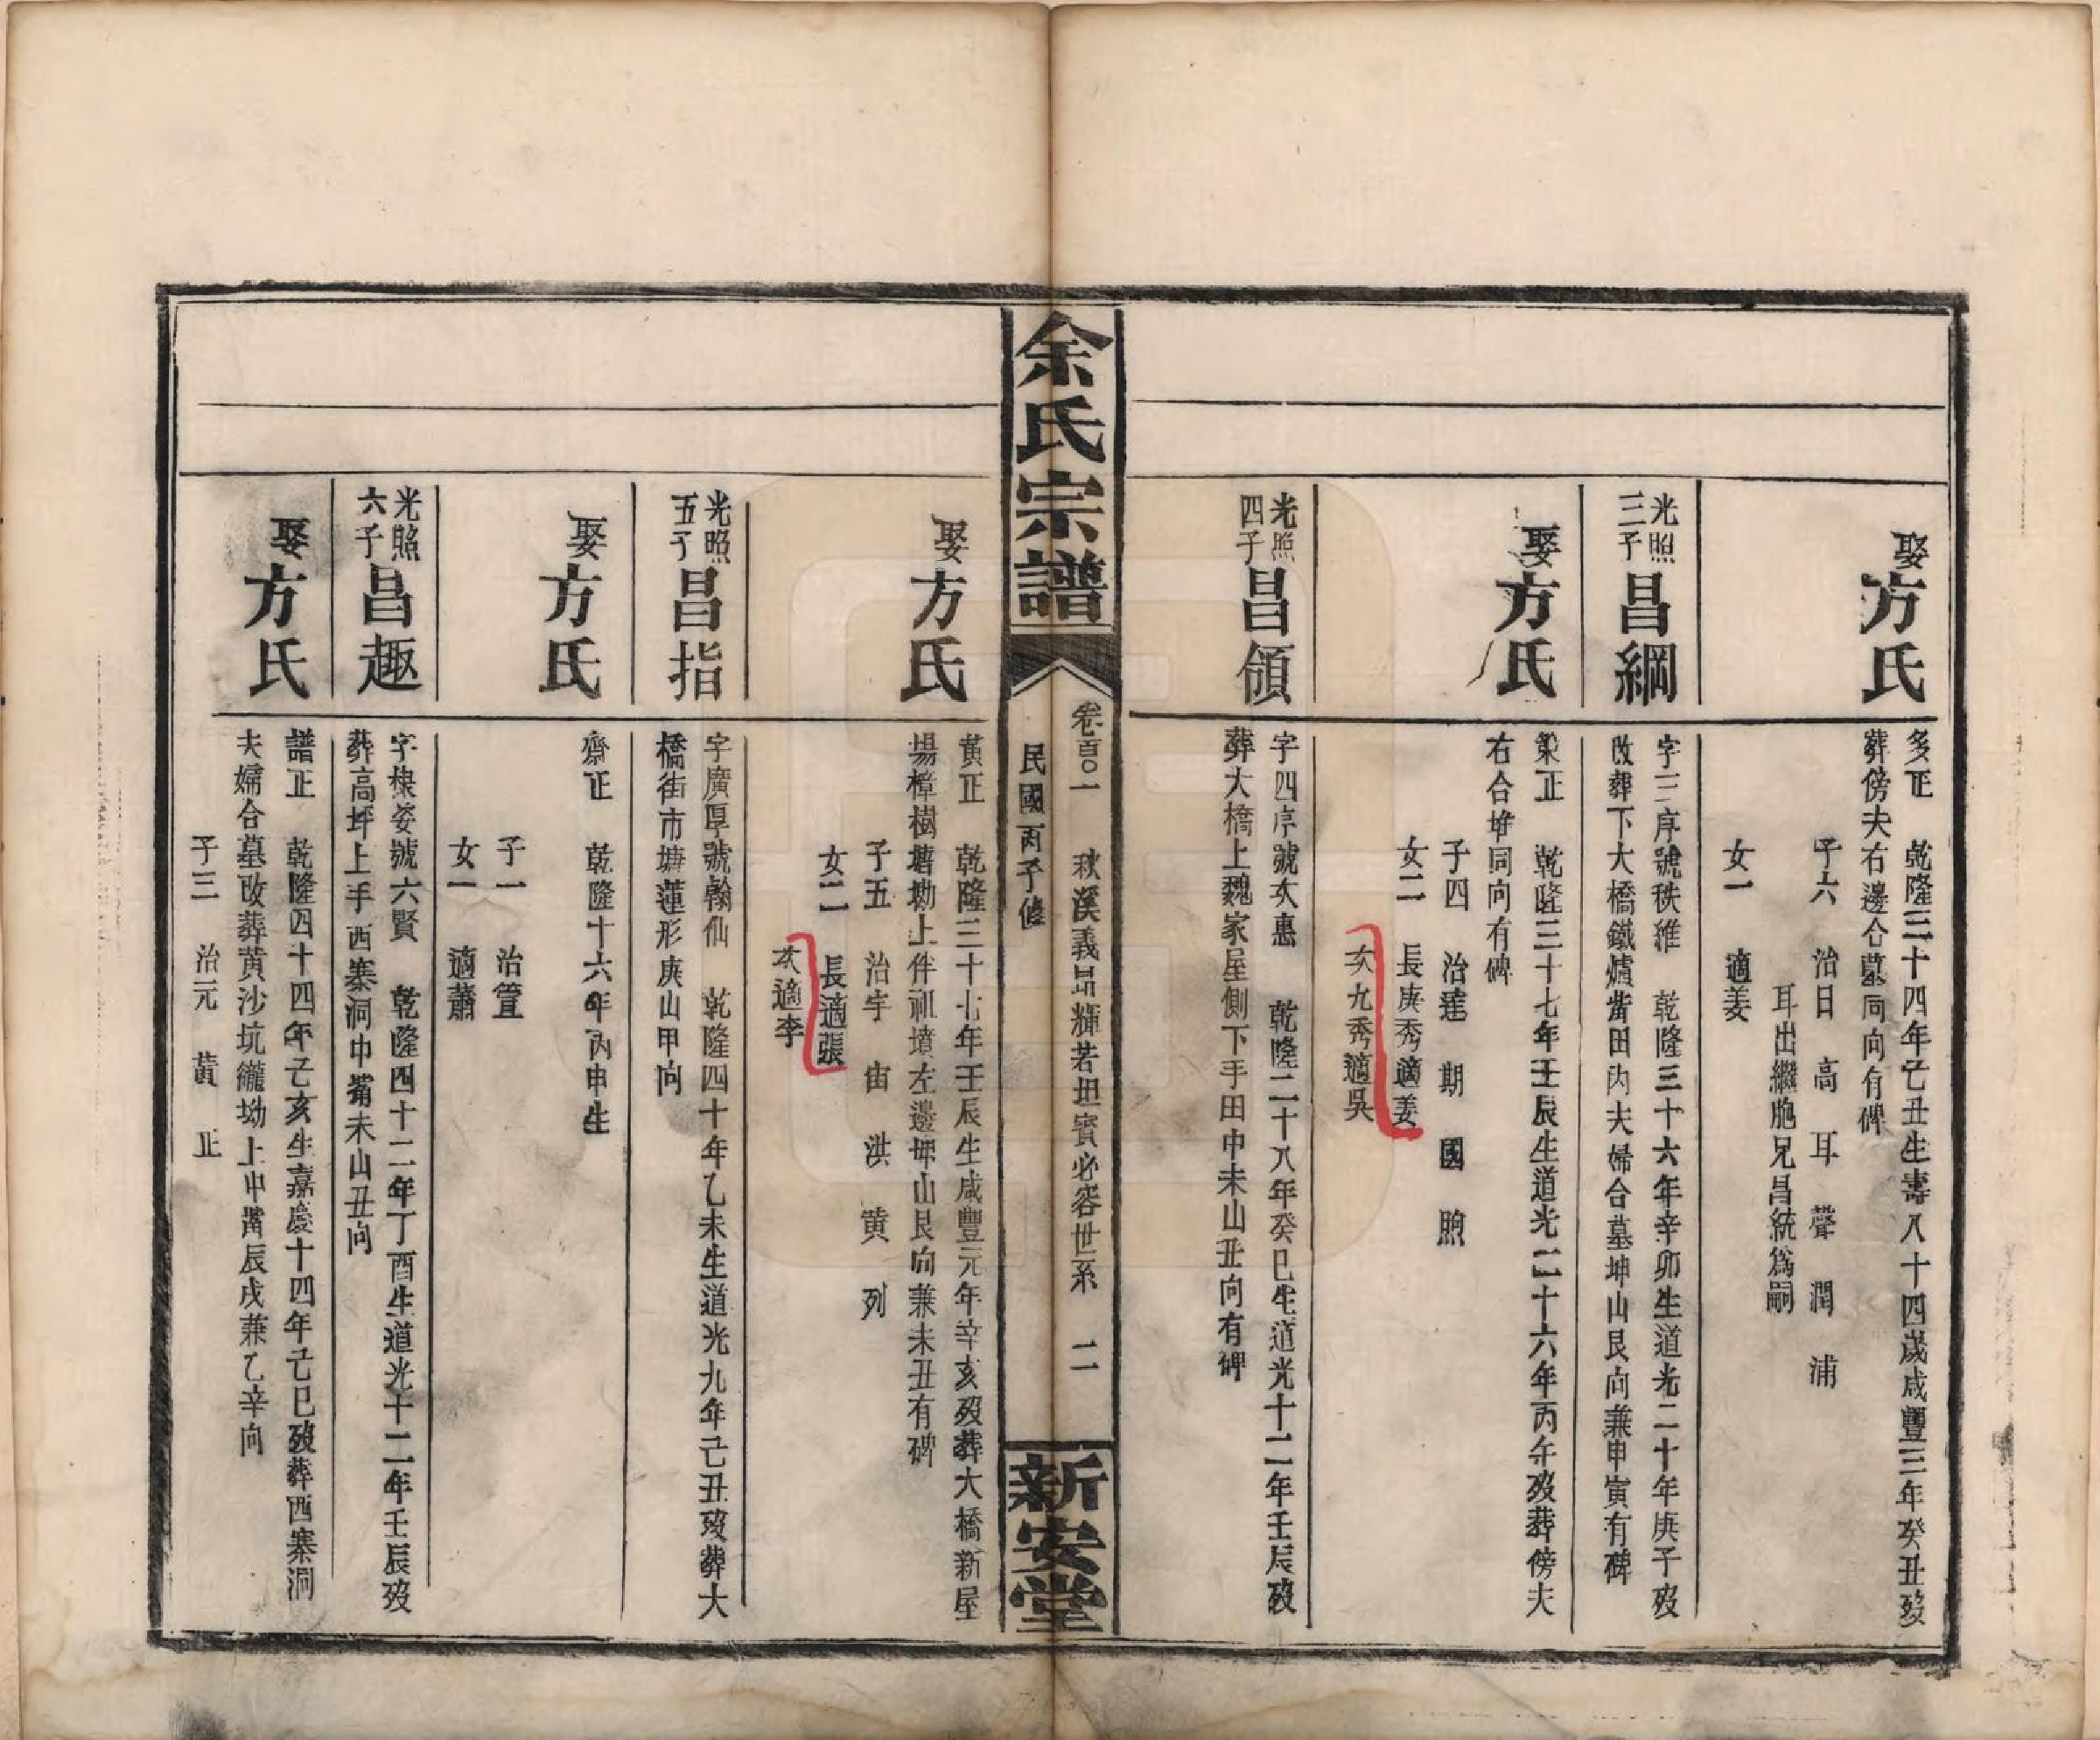 娶方氏
多正　乾隆三十四年己丑生壽八十四歲咸豐三年癸丑歿
葬傍夫右邊仝墓同向有碑
子六　治日　高　耳　聲　潤　浦
耳出繼胞兄昌統爲嗣
女一　適姜
光照三子昌綱
字三序號秩維　乾隆三十六年辛卯生道光二十年庚子歿
改葬下大橋鐵爐嘴田內夫婦合墓坤山艮向兼申寅有碑
娶方氏
榘正　乾隆三十七年壬辰生道光二十六年丙午歿葬傍夫
右合堆同向有碑
子四　治達　期　國　煦
女二　長庚秀適姜
次九秀適吳
光照四子昌領
字四序號次惠　乾隆二十八年癸巳生道光十二年壬辰歿
葬大橋上魏家屋側下手田中未山丑向有碑
余氏宗譜
卷百〇一　秋溪義昂輝若坦賓必容世系　二
民國丙子修
新安堂
娶方氏
黃正　乾隆三十七年壬辰生咸豐元年辛亥歿葬大橋新屋
場樟樹塘坳上伴祖墳左邊坤山艮向兼未丑有碑
子五　治宇　宙　洪　黄　列
女二　長適張
次適李
光照五子昌指
字廣厚號翰仙　乾隆四十年乙未生道光九年己丑歿葬大
橋街市塘蓮形庚山甲向
娶方氏
齋正　乾隆十六年丙申生
子一　治置
女一　適蕭
光照六子昌趣
字棣姿號六賢　乾隆四十二年丁酉生道光十二年壬辰歿
葬高坪上手西寨洞中嘴未山丑向
娶方氏
譜正　乾隆四十四年己亥生嘉慶十四年己巳歿葬西寨洞
夫婦合墓改葬黄沙坑巃坳上中嘴辰戌兼乙辛向
子三　治元　黃　正